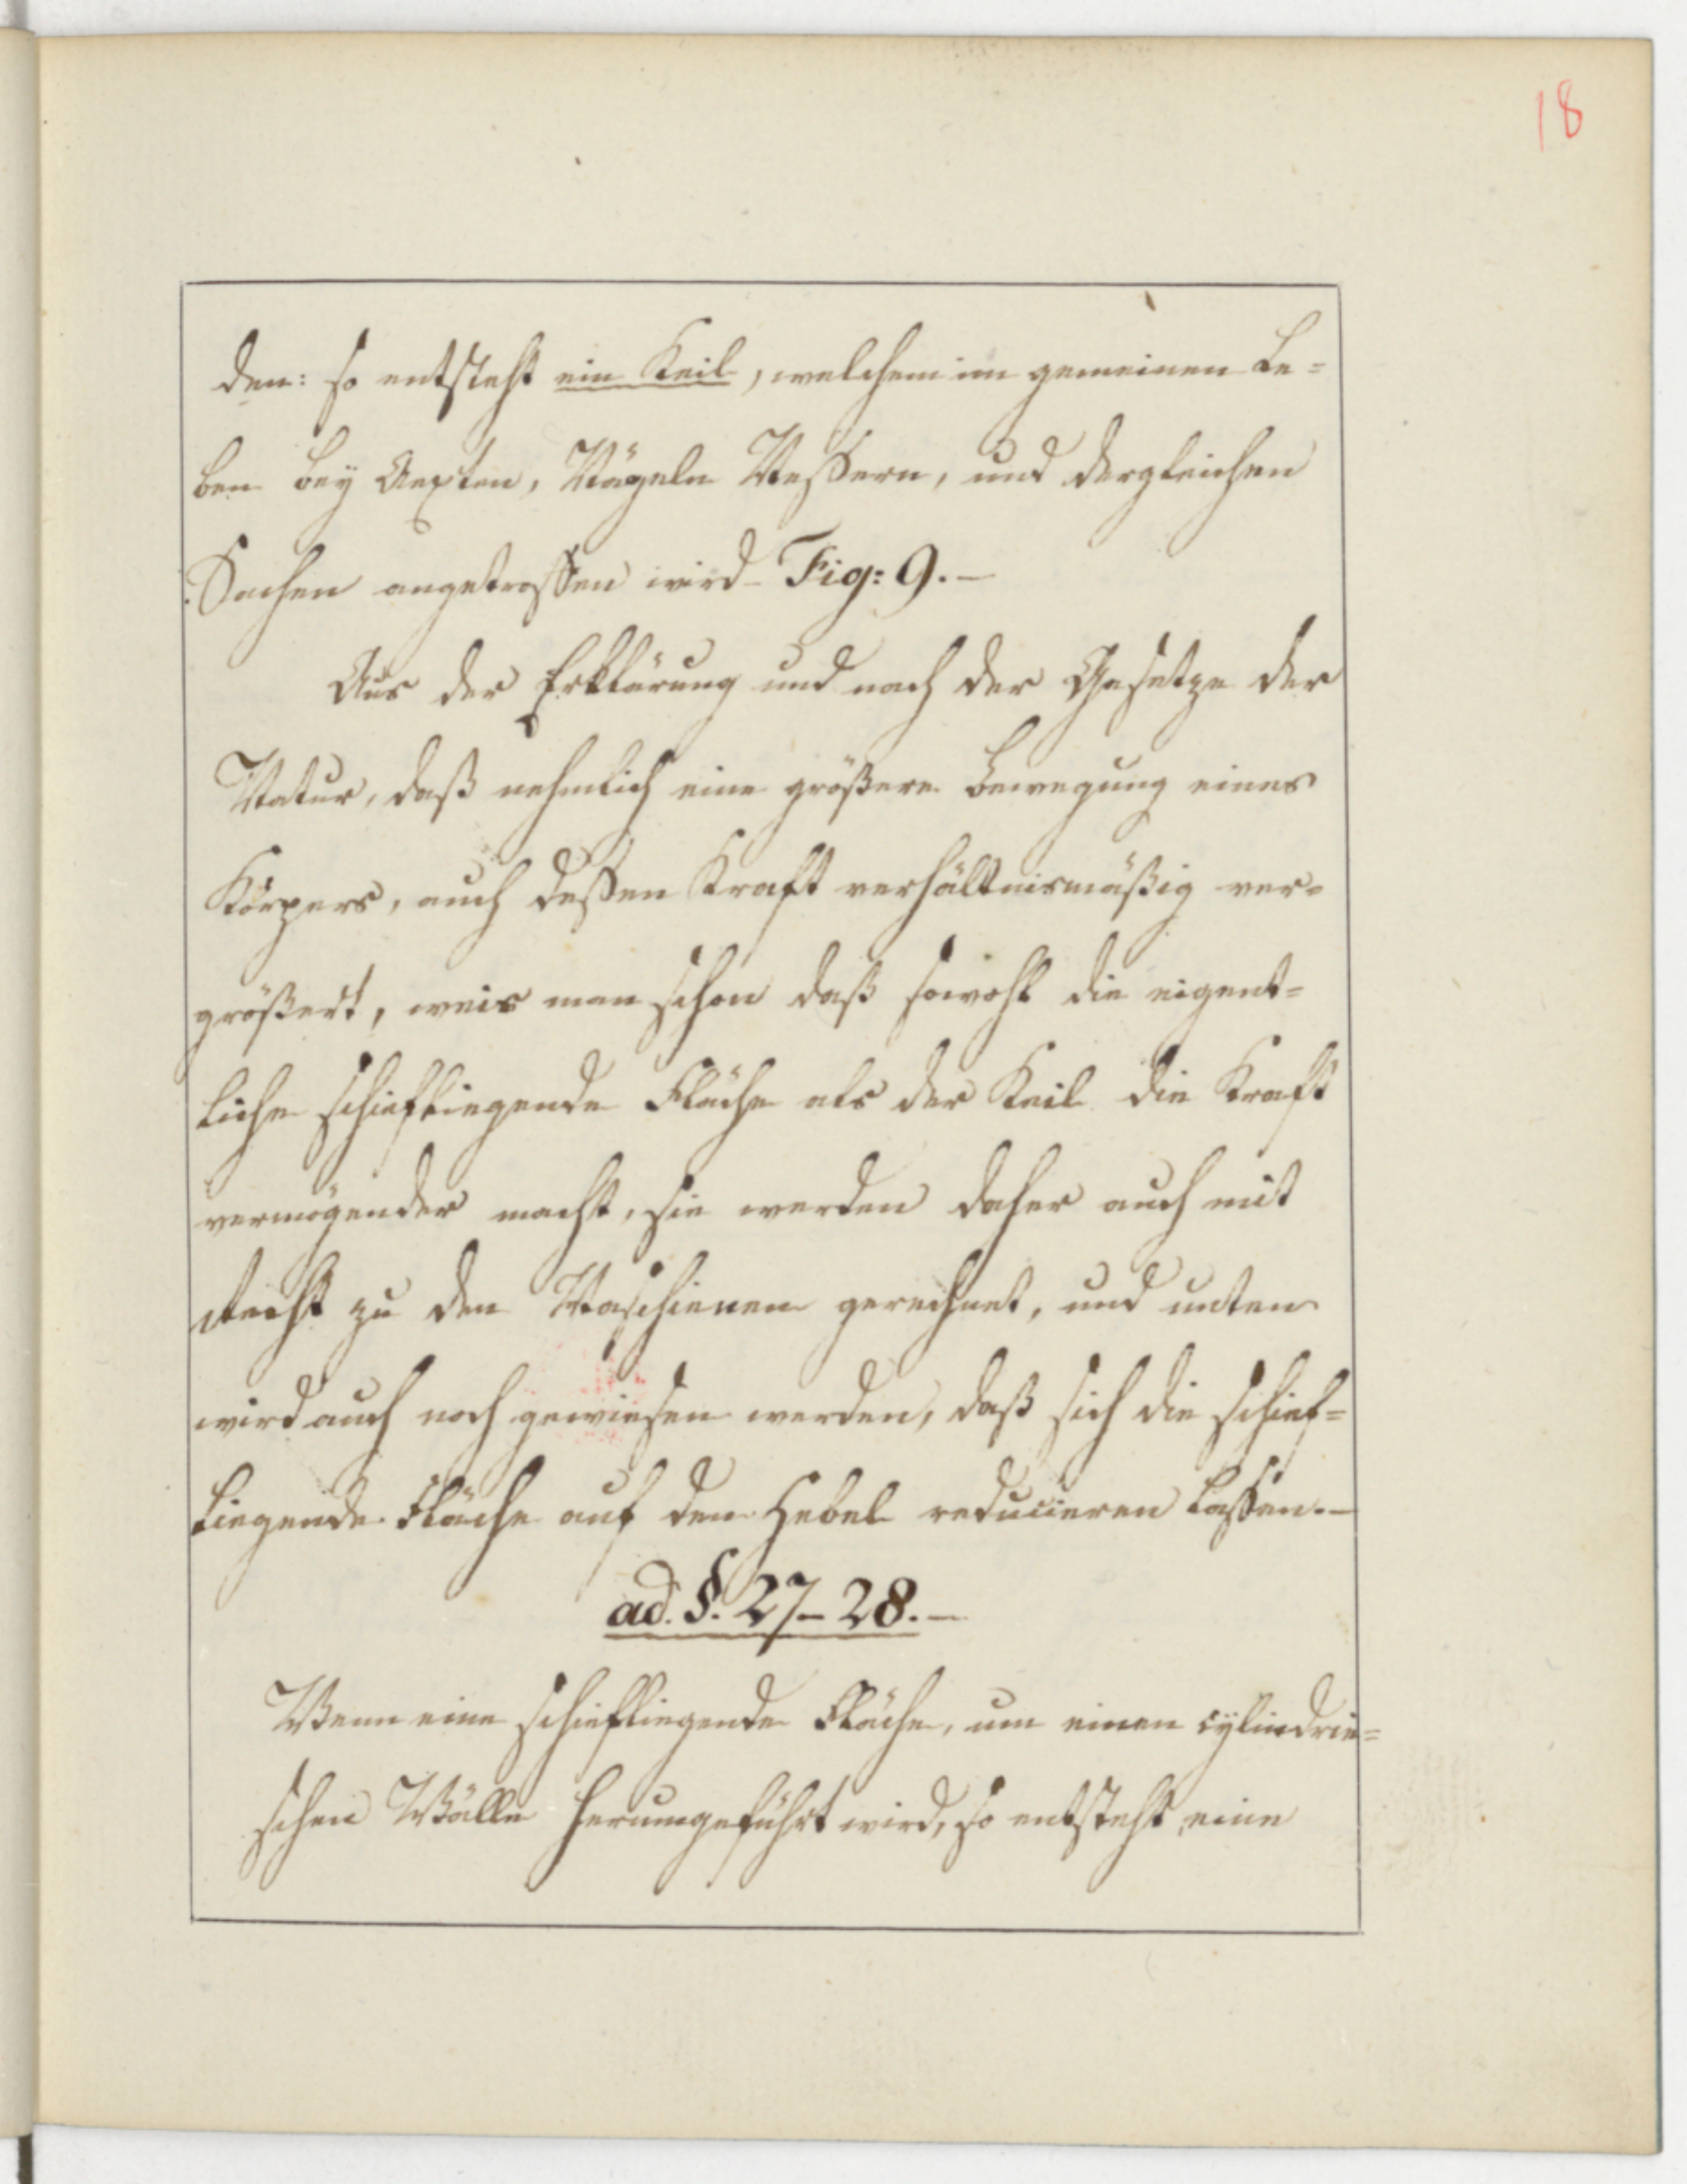 18
den: so entsteht ein Keil, welchem im gemeinen Le=
ben bey Aexten, Nägeln Meßern, und dergleichen
Sachen angetroffen wird Fig: 9.–
Aus der Erklärung und nach der Gesetze der
Natur, daß nehmlich eine größere Bewegung eines
Körpers, auch deßen Kraft verhältnismäßig ver=
größert, weis man schon daß sowohl die eigent=
liche schiefliegende Fläche als der Keil die Kraft
vermögender macht, sie werden daher auch mit
Recht zu den Maschienen gerechnet, und unten
wird auch noch gewiesen werden, daß sich die schief=
liegende Fläche auf den Hebel reducieren laßen.–
ad. §. 27–28.–
Wenn eine schiefliegende Fläche, um einen cylindrie=
schen Wälle herumgeführt wird, so entsteht eine